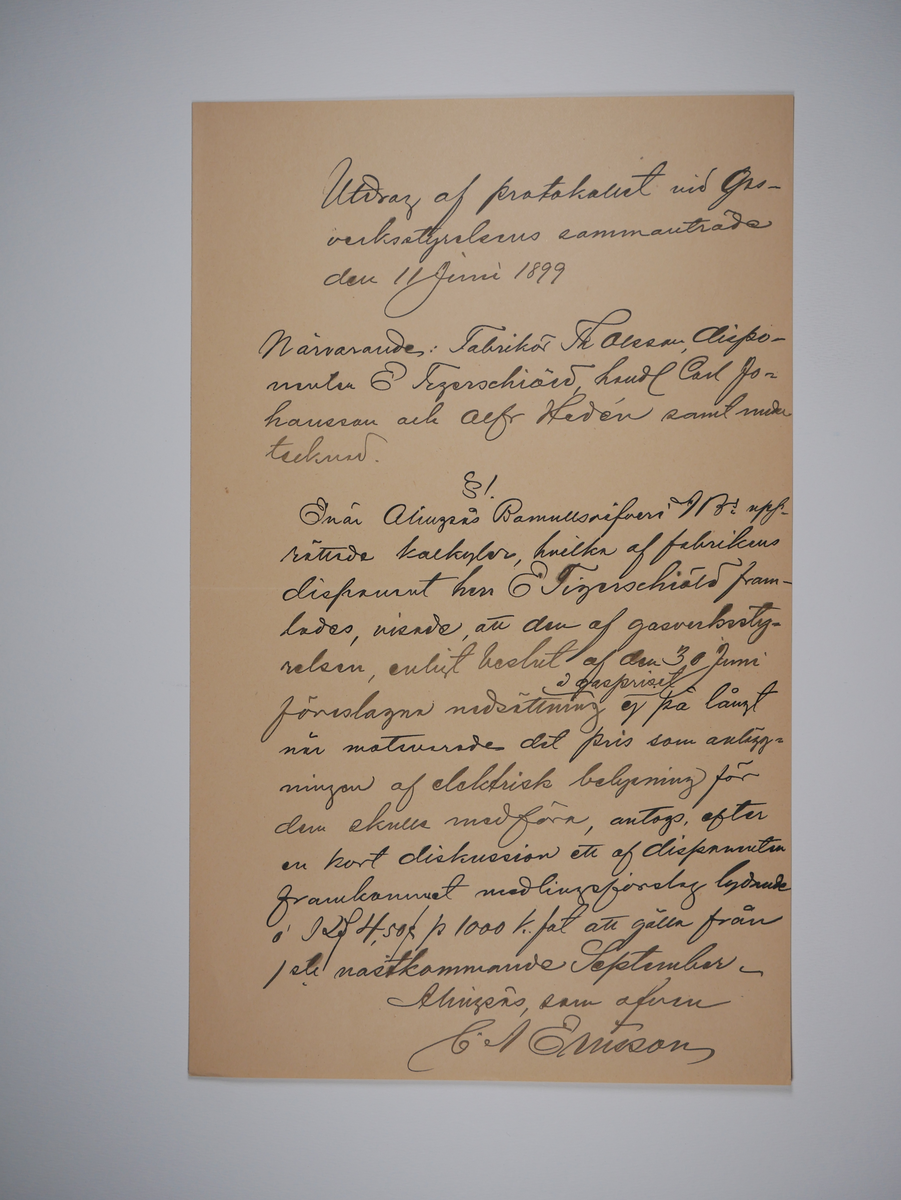 Utdrag af protokollet vid Gas-
verksstyrelsens sammanträde
den 11 Juni 1899
Närvarande: Fabrikör Th Olsson, dispo-
nenten E Tigerschiöld, handl Carl Jo-
hansson och Alfr Hedén samt under
tecknad.
§1.
Enär Alingsås Bomullsväfveri AB: upp-
rättade kalkyler, hvilka af fabrikens
disponent herr E Tigerschiöld fram-
lades, visade, att den af gasverkssty-
relsen, enligt beslut af den 30 Juni
å gaspriset
föreslagna nedsättning ej på långt
när motsvarade det pris som anlägg-
ningen af elektrisk belysning för
dem skulle medföra, antogs, efter
en kort diskussion ett af disponenten
framkommet medlingsförslag lydande
å 4,50 p 1000 k. fot att gälla från
1ste nästkommande September.
Alingsås, som ofvan
C A Ericsson